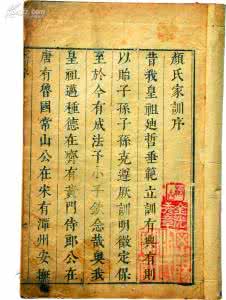 顏氏家訓序
昔我皇祖廸哲垂範立訓有典有則
以貽子孫子孫克遵厥訓明徵定保
至於今有成法予小子欽念哉奥我
皇祖邁種德在齊有黃門侍郎公在
唐有魯國常山公在宋有潭州安撫